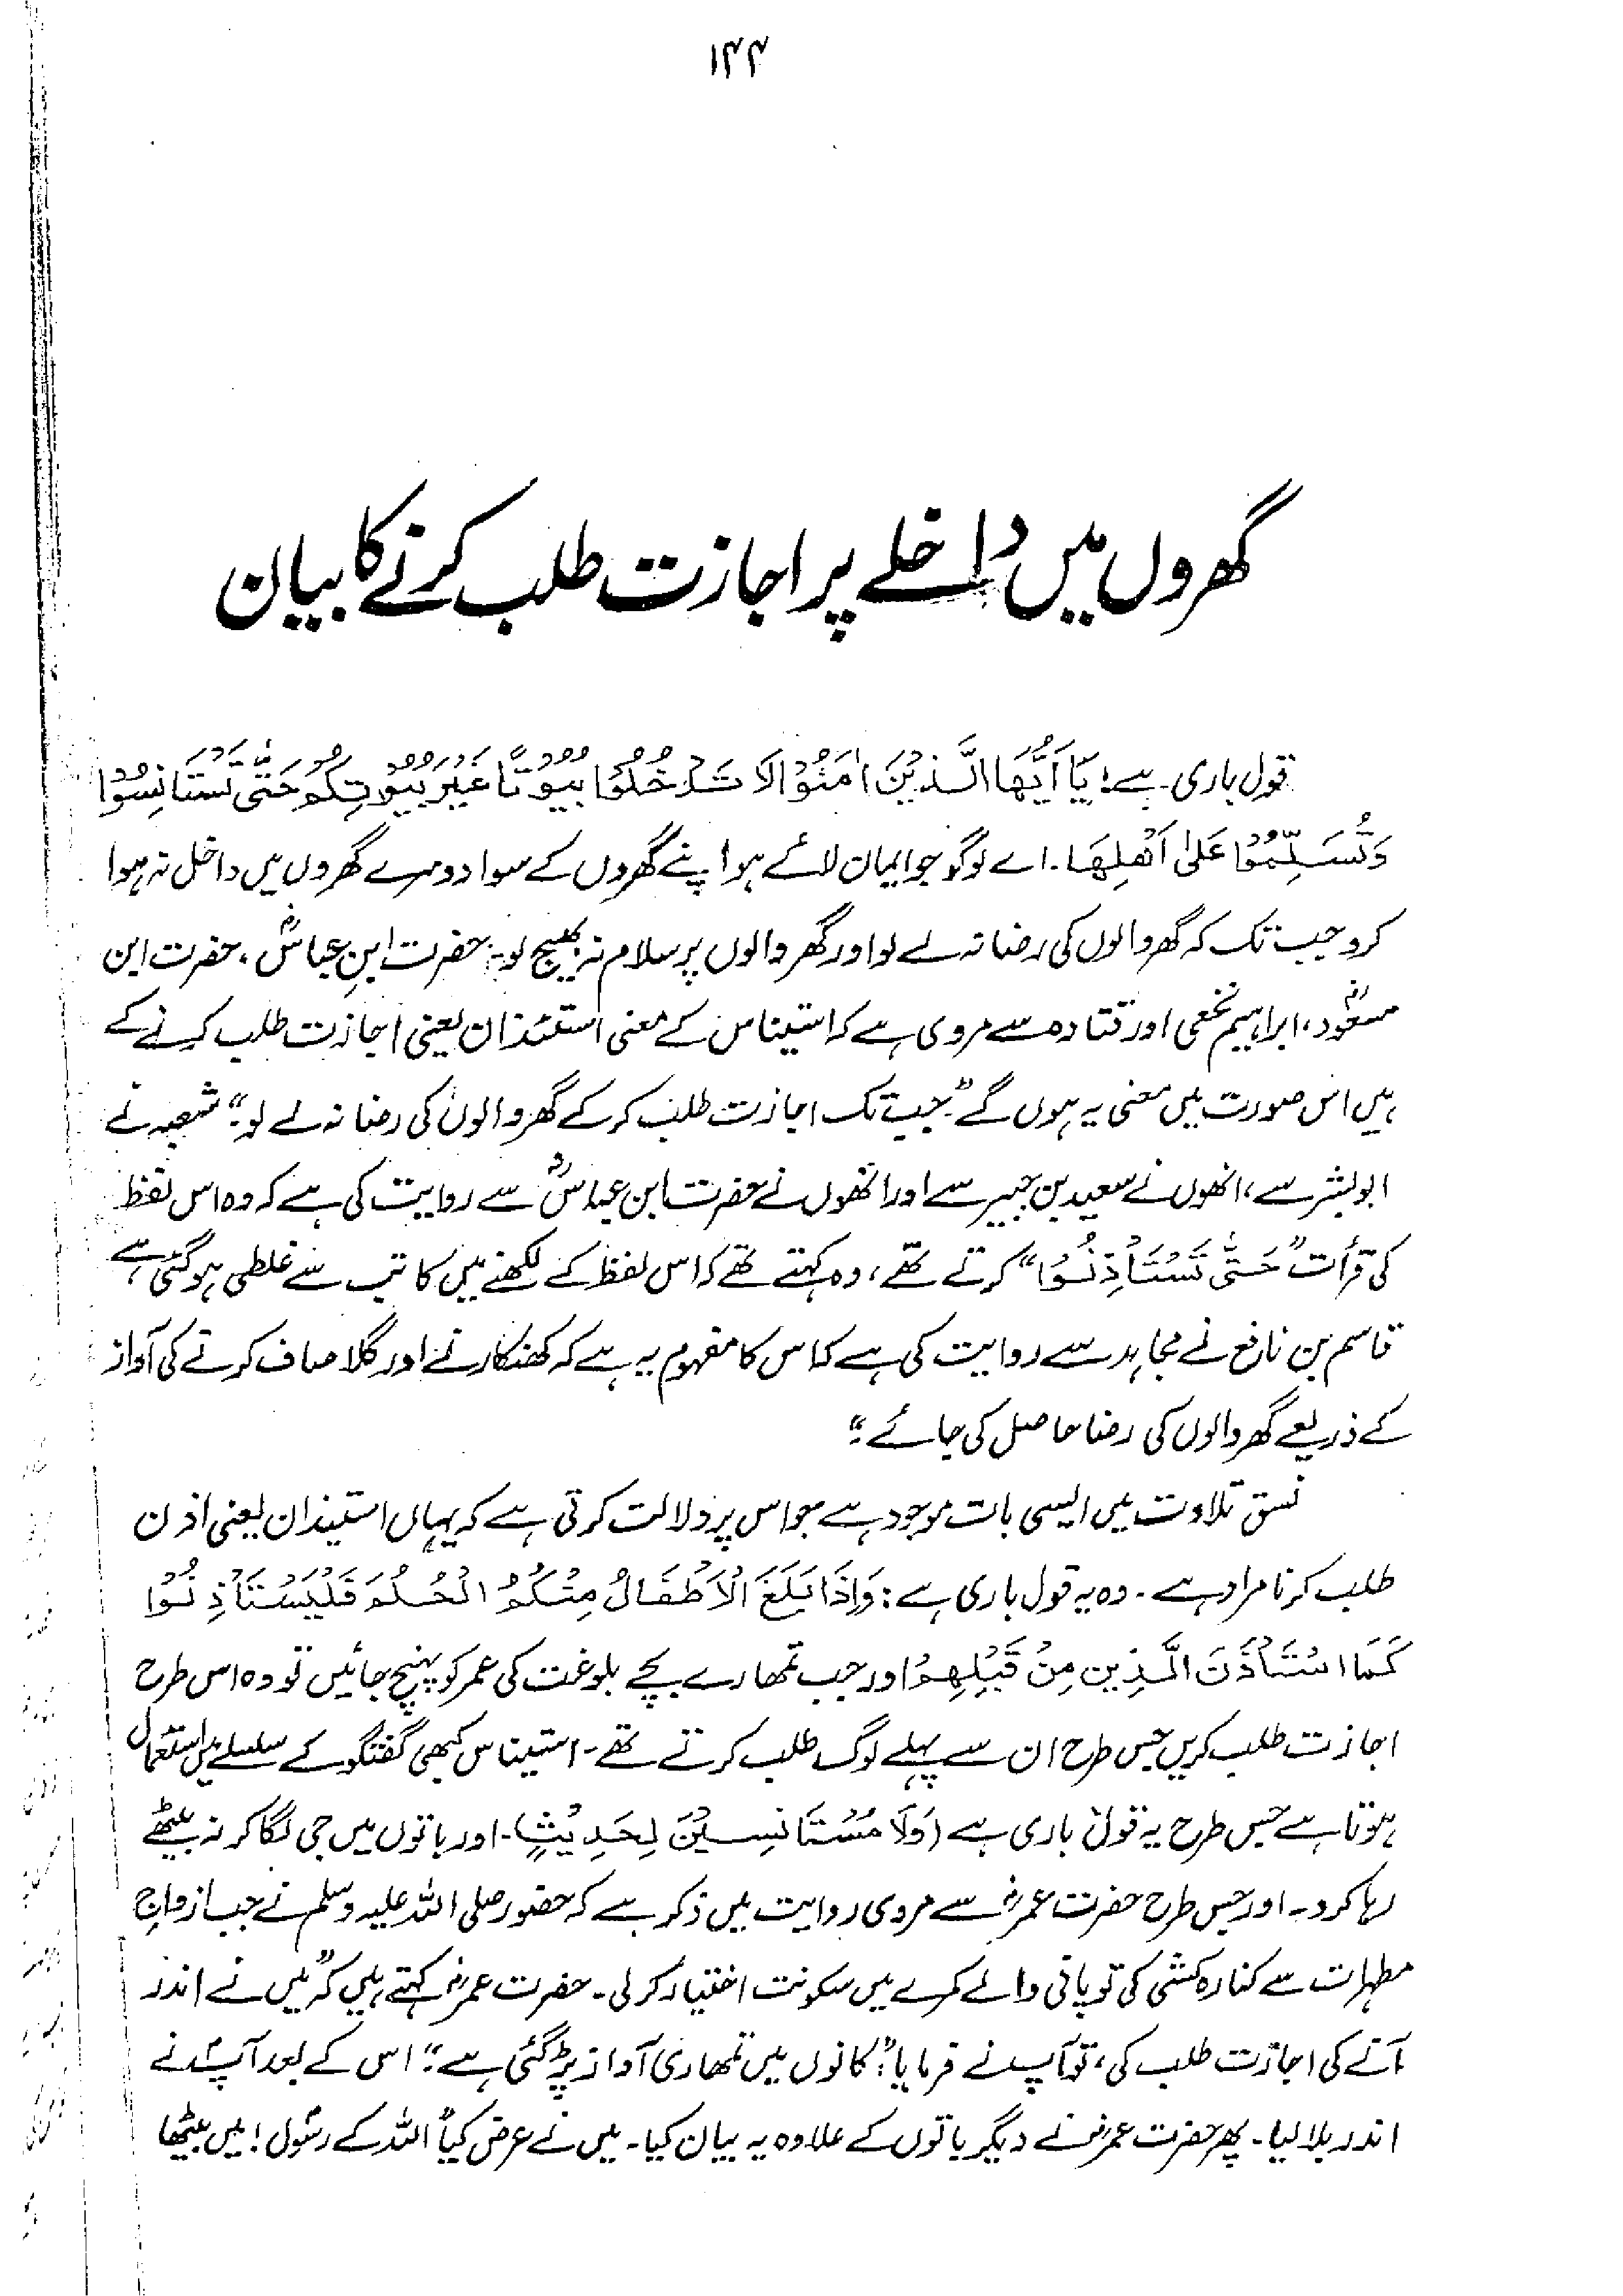 ۱۴۴
گھروں میں داخلے پر اجازت طلب کرنے کا بیان
قول باری ہے: يَا أَيُّهَا الَّذِيْنَ اٰمَنُوْا لَا تَدْخُلُوْا بُيُوْتًا غَيْرَ بُيُوْتِكُمْ حَتّٰى تَسْتَانِسُوْا
وَتُسَلِّمُوْا عَلٰى اَهْلِهَا۔ اے لوگو جو ایمان لائے ہو اپنے گھروں کے سوا دوسرے گھروں میں داخل نہ ہوا
کرو جب تک کہ گھر والوں کی رضا نہ لے لو اور گھر والوں پر سلام نہ بھیج لو۔ حضرت ابنِ عباسؓ، حضرت ابن
مسعودؓ، ابراہیم نخعی اور قتادہ سے مروی ہے کہ استیناس کے معنی استئذان یعنی اجازت طلب کرنے کے
ہیں اس صورت میں معنی یہ ہوں گے "جب تک اجازت طلب کر کے گھر والوں کی رضا نہ لے لو۔" شعبہ نے
ابو بشر سے، انھوں نے سعید بن جبیر سے اور انھوں نے حضرت ابن عباسؓ سے روایت کی ہے کہ وہ اس لفظ
کی قرأت "حَتّٰى تَسْتَأْذِنُوْا" کرتے تھے، وہ کہتے تھے کہ اس لفظ کے لکھنے میں کاتب سے غلطی ہو گئی ہے
قاسم بن نافع نے مجاہد سے روایت کی ہے کہ اس کا مفہوم یہ ہے کہ کھنکارنے اور گلا صاف کرنے کی آواز
کے ذریعے گھر والوں کی رضا حاصل کی جائے۔"
نسق تلاوت میں ایسی بات موجود ہے جو اس پر دلالت کرتی ہے کہ یہاں استیذان یعنی اذن
طلب کرنا مراد ہے۔ وہ یہ قول باری ہے: وَاِذَا بَلَغَ الْاَطْفَالُ مِنْكُمُ الْحُلُمَ فَلْيَسْتَاْذِنُوْا
كَمَا اسْتَاْذَنَ الَّذِين مِنْ قَبْلِهِمْ اور جب تمھارے بچے بلوغت کی عمر کو پہنچ جائیں تو وہ اس طرح
اجازت طلب کریں جس طرح ان سے پہلے لوگ طلب کرتے تھے۔ استیناس کبھی گفتگو کے سلسلے میں استعمال
ہوتا ہے جس طرح یہ قول باری ہے (وَلَا مُسْتَانِسِيْنَ لِحَدِيْثٍ)۔ اور باتوں میں جی لگا کر نہ بیٹھے
رہا کرو۔ اور جس طرح حضرت عمرؓ سے مروی روایت میں ذکر ہے کہ حضور صلی اللہ علیہ وسلم نے جب ازواجِ
مطہرات سے کنارہ کشی کی تو پانی والے کمرے میں سکونت اختیار کر لی۔ حضرت عمرؓ کہتے ہیں کہ "میں نے اندر
آنے کی اجازت طلب کی، تو آپ نے فرمایا: "کانوں میں تمھاری آواز پڑ گئی ہے۔" اس کے بعد آپؐ نے
اندر بلا لیا۔ پھر حضرت عمرؓ نے دیگر باتوں کے علاوہ یہ بیان کیا۔ میں نے عرض کیا "اللہ کے رسول! میں بیٹھا